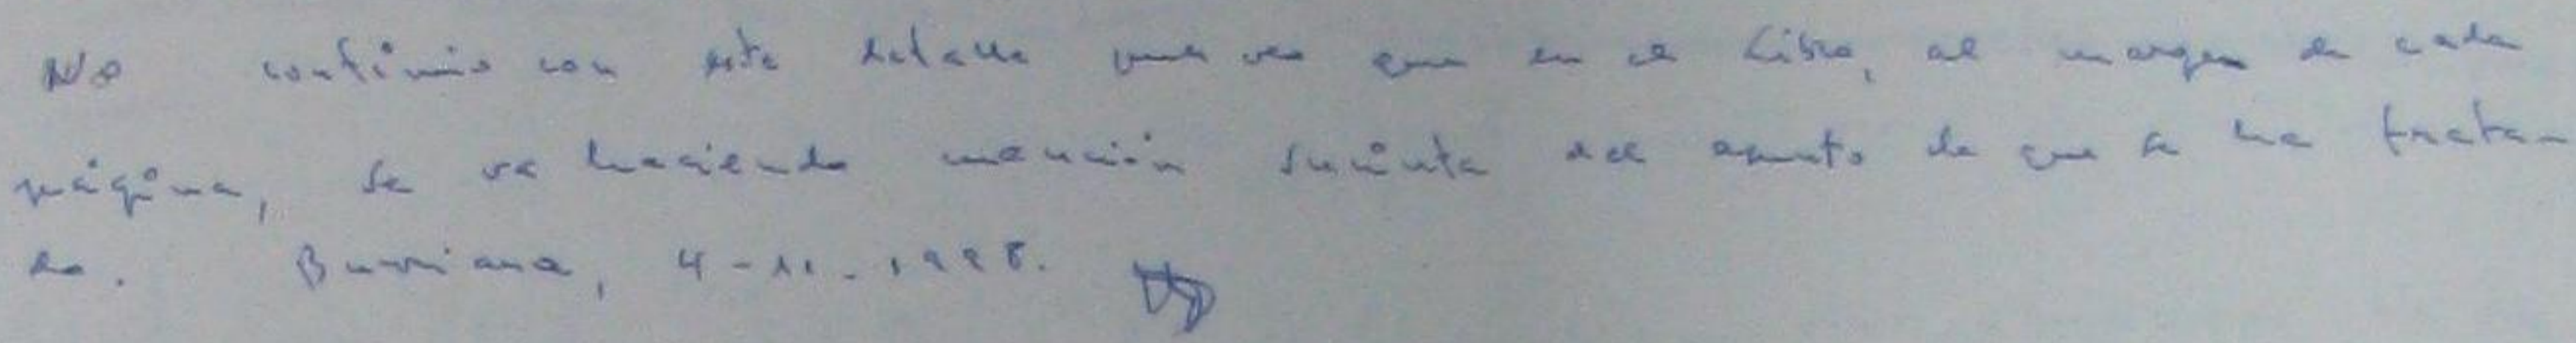 No continúo con este detalle pues veo que en el Libro, al margen de cada
página, se va haciendo mención sucinta del asunto de que se ha trata-
do. Burriana, 4-11-1998.